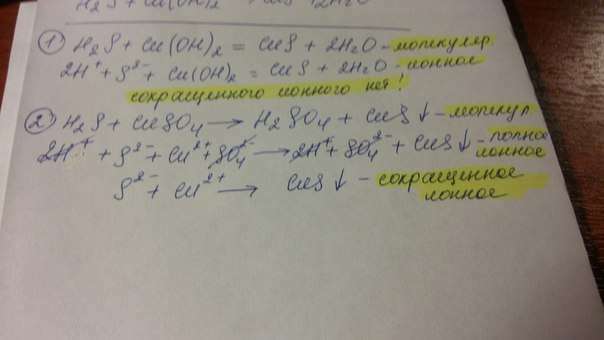 H₂S + Cu(OH)₂
① H₂S + Cu(OH)₂ = CuS + 2H₂O - молекуляр.
2H⁺ + S²⁻ + Cu(OH)₂ = CuS + 2H₂O - ионное
сокращенного ионного нет!
② H₂S + CuSO₄ → H₂SO₄ + CuS↓ - молекул
2H⁺ + S²⁻ + Cu²⁺ + SO₄²⁻ → 2H⁺ + SO₄²⁻ + CuS↓ - полное
ионное
S²⁻ + Cu²⁺ → CuS↓ - сокращенное
ионное